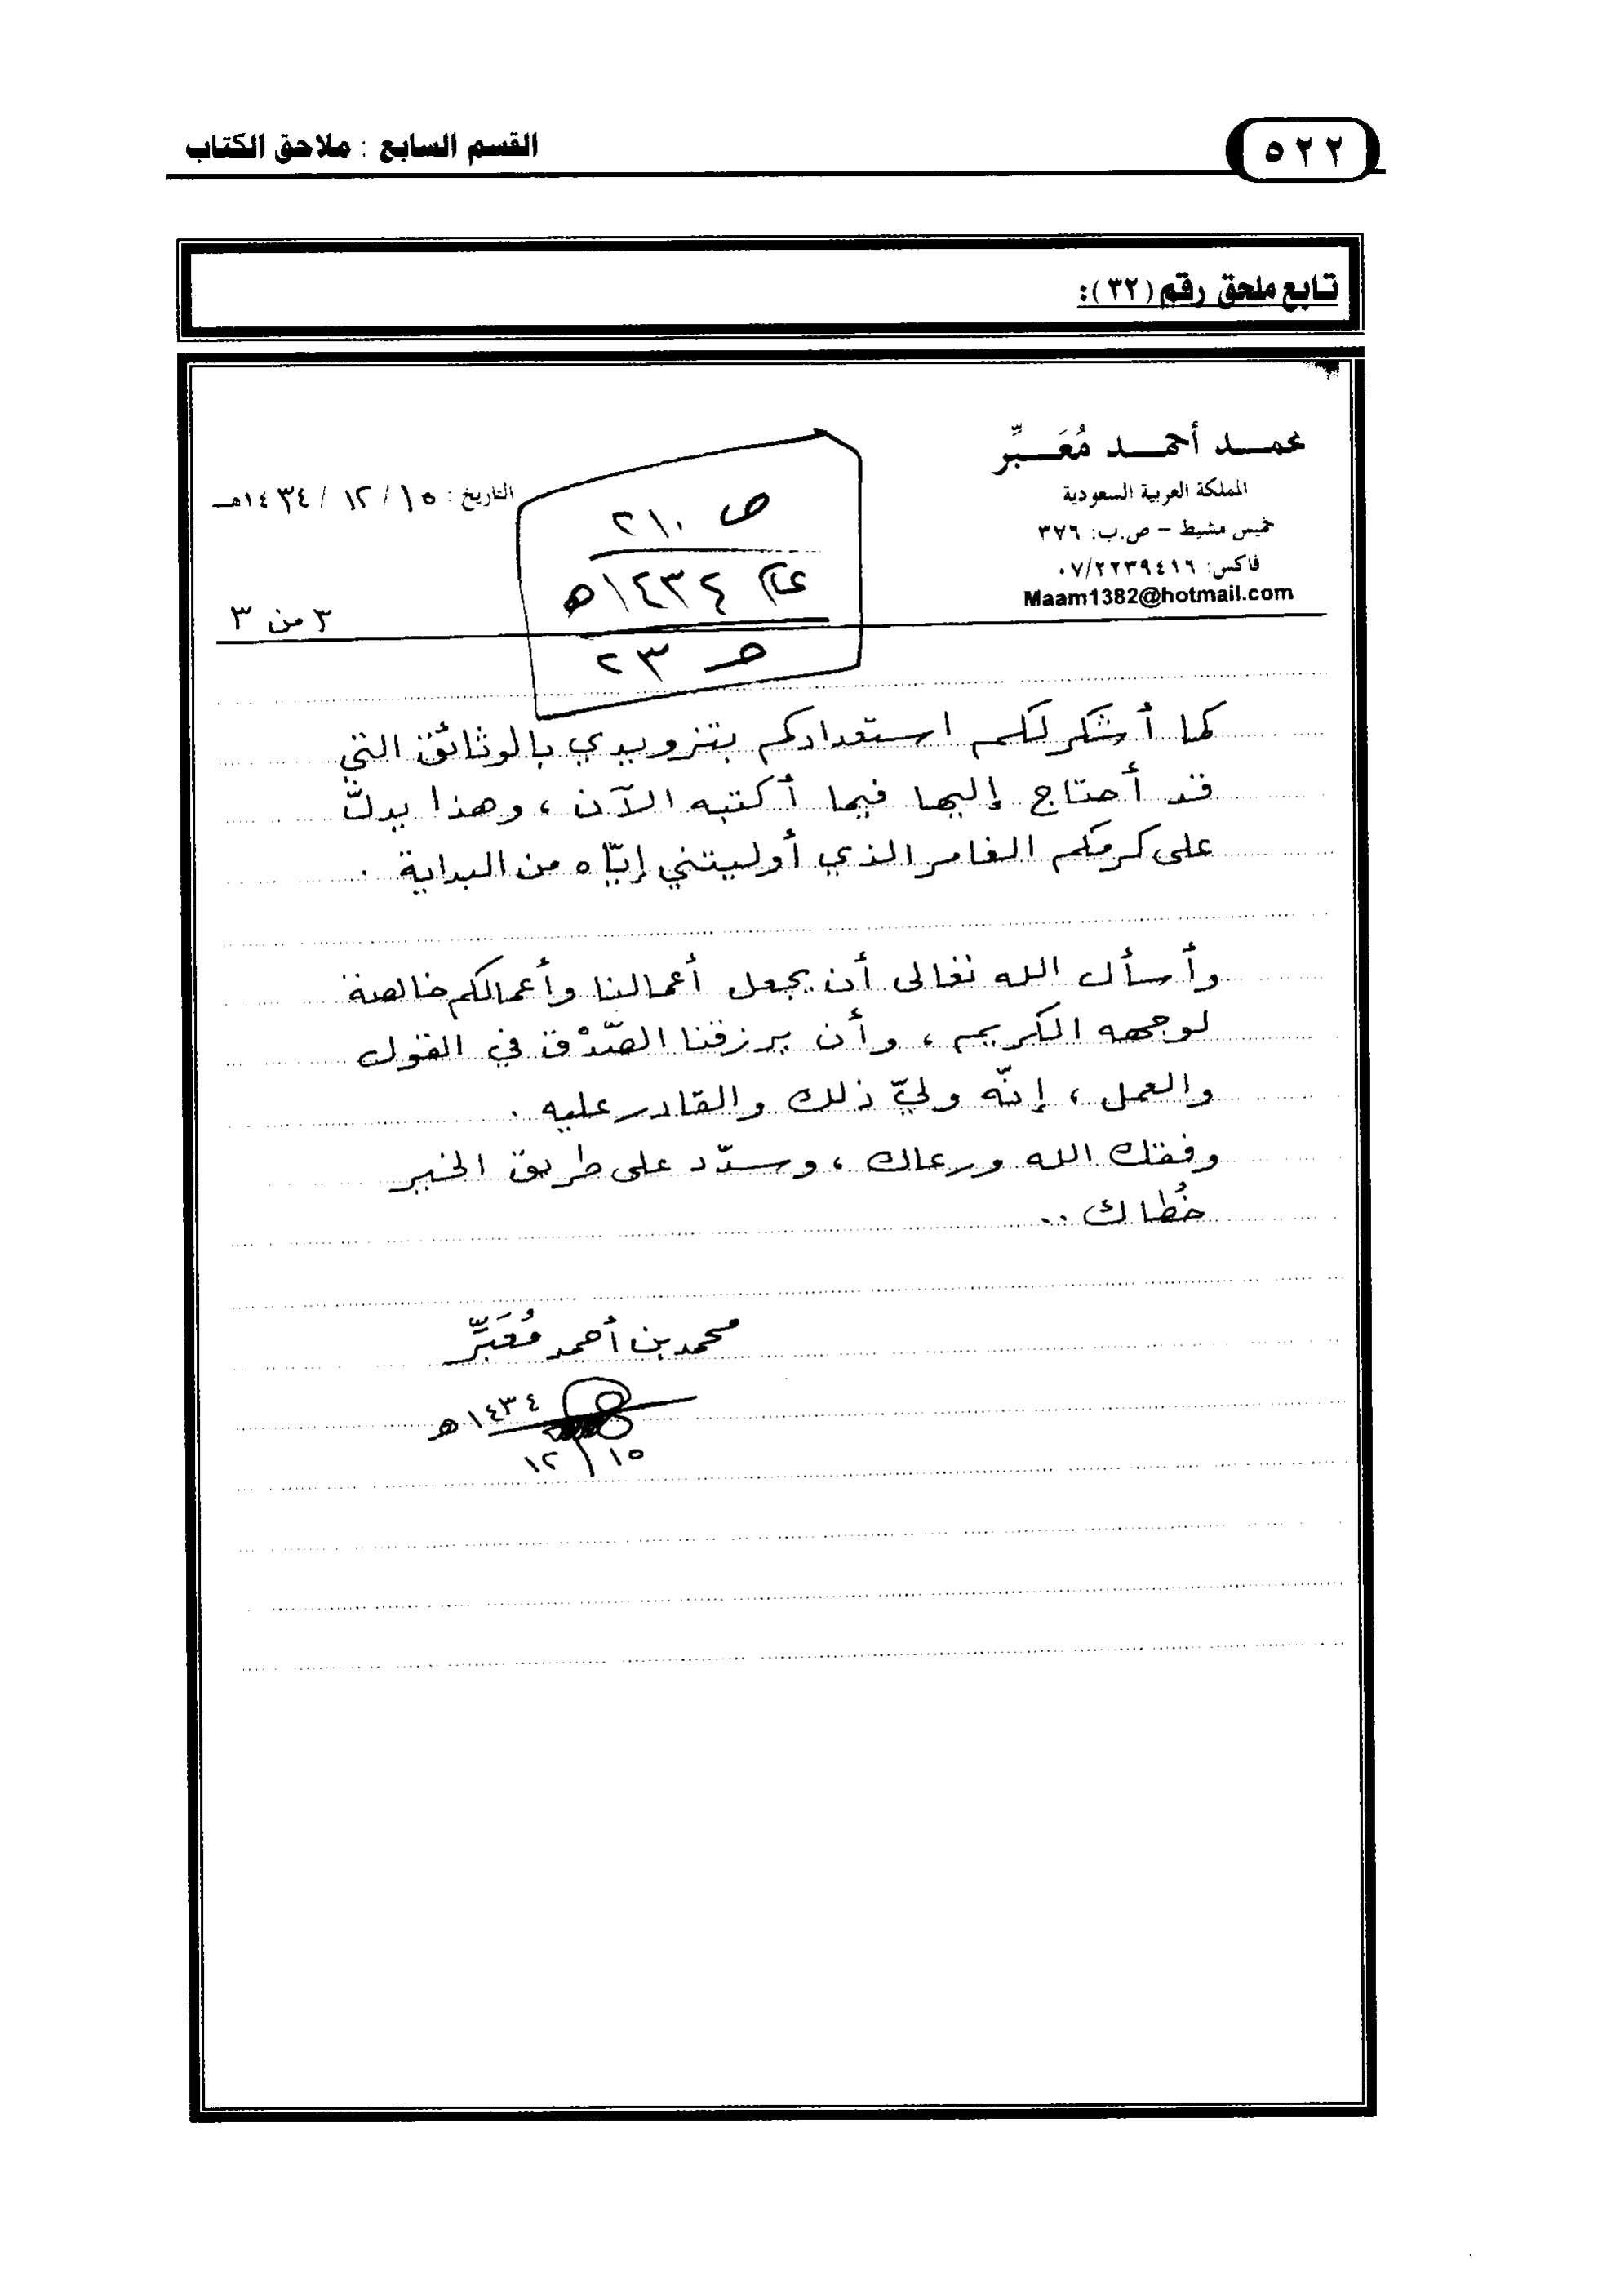 ٥٢٢
القسم السابع : ملاحق الكتاب
تابع ملحق رقم (٣٢):
محمد أحمد مُعَبِّر
المملكة العربية السعودية
خميس مشيط - ص.ب: ٣٧٦
فاكس: ٠٧/٢٢٣٩٤١٦
Maam1382@hotmail.com
ص ٢١٠
عام ١٤٣٤ه
حـ ٢٣
التاريخ : ١٥ / ١٢ / ١٤٣٤هـ
٣ من ٣
كما أشكر لكم استعدادكم بتزويدي بالوثائق التي
قد أحتاج إليها فيما أكتبه الآن ، وهذا يدلّ
على كرمكم الغامر الذي أوليتني إيّاه من البداية .
وأسأل الله تعالى أن يجعل أعمالنا وأعمالكم خالصة
لوجهه الكريم ، وأن يرزقنا الصّدْق في القول
والعمل ، إنّه وليّ ذلك والقادر عليه .
وفقك الله ورعاك ، وسدّد على طريق الخير
خُطاك ..
محمد بن أحمد مُعَبِّر
١٤٣٤ ه
١٥ / ١٢